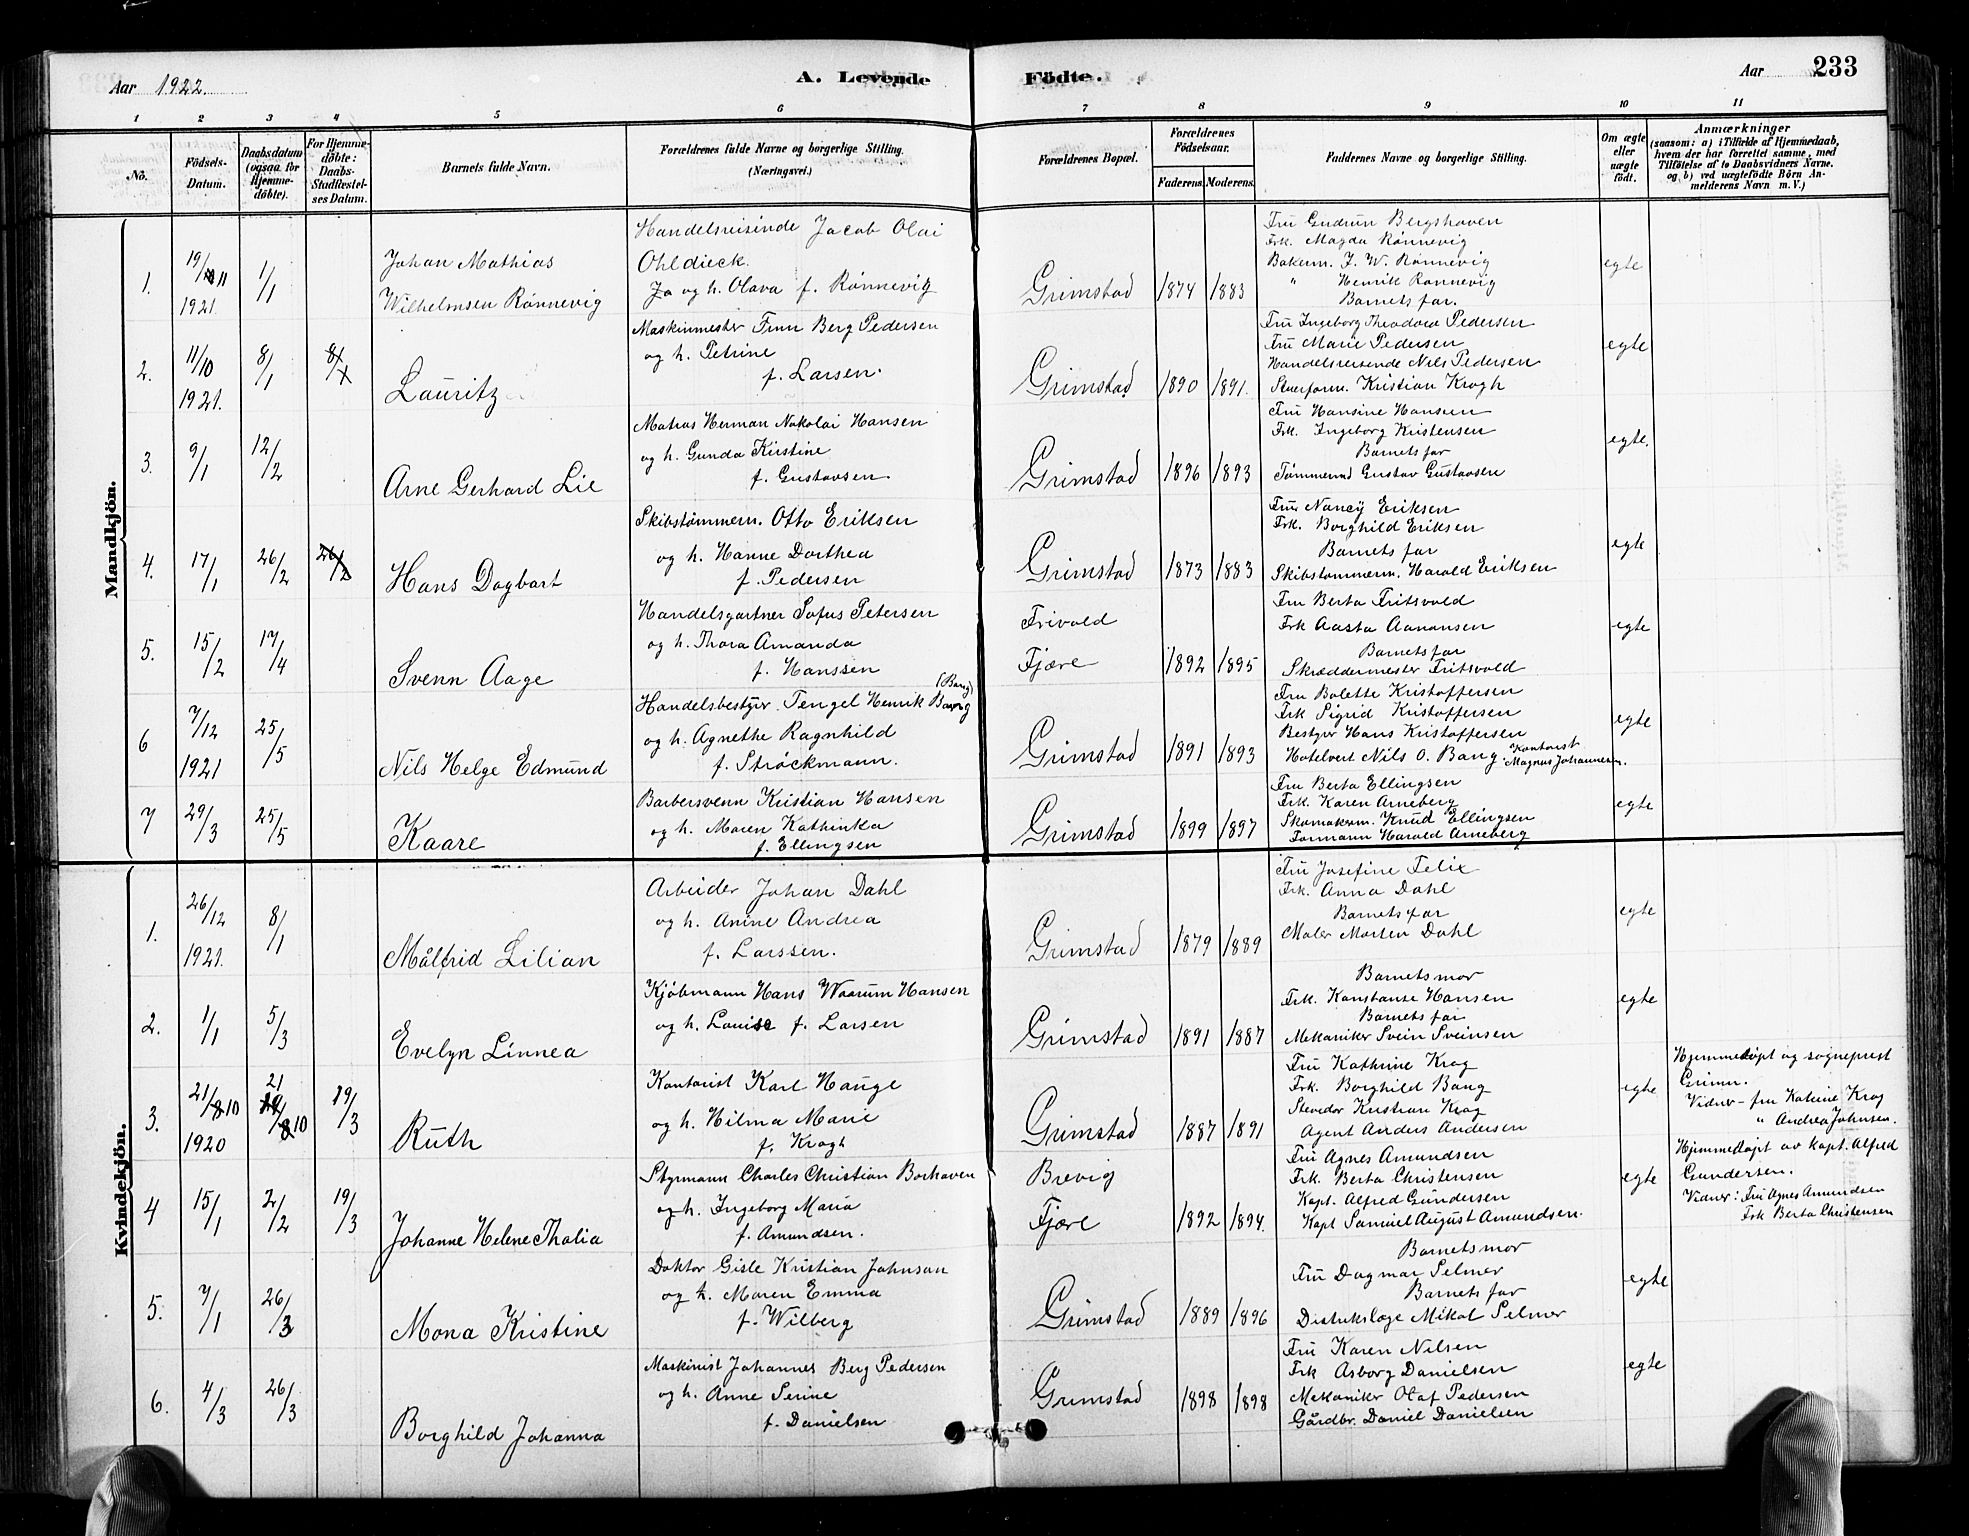 Aar 1922.
A. Levende Födte.
Aar 233
1 2 3 4 5 6 7 8 9 10 11
No.
Födsels-Datum.
Daabsdatum (ogsaa for Hjemmedöbte).
For Hjemmedöbte: Daabs-Stadfæstelses Datum.
Barnets fulde Navn.
Forældrenes fulde Navne og borgerlige Stilling.
(Næringsvei.)
Forældrenes Bopæl.
Forældrenes Födselsaar.
Faderens. Moderens.
Faddernes Navne og borgerlige Stilling.
Om ægte eller uægte födt.
Anmærkninger
(saasom: a) i Tilfælde af Hjemmedaab,
hvem der har forrettet samme, med
Tilföielse af to Daabsvidners Navne.
og b) ved uægtefödte Börn Anmelderens Navn m. V.)
Mandkjön.
1. 19/11 1921. 1/1
Johan Mathias
Wilhelmsen Rönnevig
Handelsreisinde Jacob Olai
Ohldieck.
Ja og h. Olava f. Rønnevig
Grimstad 1874 1883
Fru Gudrun Bergshaven
Frk. Magda Rønnevig
Bakerm. J. W. Rønnevig
" Henrik Rønnevig
Barnets far.
egte
2. 11/10 1921. 8/1
Lauritz
Maskinmester Finn Berg Pedersen
og h. Petrine
f. Larsen.
Grimstad 1890 1891.
Fru Ingeborg Theodora Pedersen
Fru Marie Pedersen
Handelsreisende Nils Pedersen
Stuerform. Kristian Krogh
egte
3. 9/1 12/2
Arne Gerhard Lie
Matros Herman Nikolai Hansen
og h. Gunda Kirstine
f. Gustavsen
Grimstad 1896 1893
Fru Hansine Hansen
Frk. Ingeborg Kristensen
Barnets far
Tømmermd Gustav Gustavsen
egte.
4. 17/1 26/2 26/2
Hans Dagbart
Skibstømmerm. Otto Eriksen
og h. Hanne Dorthea
f. Pedersen
Grimstad 1873 1883
Frue Nancy Eriksen
Frk. Borghild Eriksen
Barnets far
Skibstømmerm. Harald Eriksen
egte
5. 15/2 17/4
Svenn Aage
Handelsgartner Sofus Petersen
og h. Thora Amanda
f. Hanssen
Frivold
Fjære 1892 1895
Fru Berta Fritsvold
Frk Aasta Aanonsen
Barnets far
Skræddermester Fritsvold
egte
6 7/12 1921 25/5
Nils Helge Edmund
(Bang)
Handelsbestyr. Tengel Henrik Bang
og h. Agnethe Ragnhild
f. Strøckmann.
Grimstad 1891 1893
Fru Bolette Kristoffersen
Frk Sigrid Kristoffersen
Bestyrer Hans Kristoffersen
Hotelvert Nils O. Bang. Kontorist
Magnus Johannesen.
egte
7 29/3 25/5
Kaare
Barbersvenn Kristian Hansen
og h. Maren Kathinka
f. Ellingsen
Grimstad 1899 1897
Fru Berta Ellingsen
Frk. Karen Arneberg
Skomakerm. Knud Ellingsen
Formann Harald Arneberg
egte
Kvindekjön.
1. 26/12 1921. 8/1
Målfrid Lilian
Arbeider Johan Dahl
og h. Anine Andrea
f. Larssen.
Grimstad 1879 1889
Fru Josefine Felix
Frk. Anna Dahl
Barnets far
Maler Morten Dahl
egte
2. 1/1 5/3
Evelyn Linnea
Kjøbmann Hans Waarum Hansen
og h. Louise f. Larsen
Grimstad 1891 1887
Barnets mor
Frk. Konstanse Hansen
Barnets far
Mekaniker Svein Sveinsen
egte
3. 21/10 1920 21/10 19/3
Ruth
Kontorist Karl Hauge
og h. Hilma Marie
f. Krogh
Grimstad 1887 1891
Fru Kathrine Krog
Frk. Borghild Bang
Stevedor Kristian Krog
Agent Anders Andersen
egte
Hjemmedøpt og sogneprest
Grimn.
Vidner - fru Katrine Krog
" Andrea Johnsen.
4 15/1 2/2 19/3
Johanne Helene Thalia
Styrmann Charles Christian Borhaven
og h. Ingeborg Maria
f. Amundsen.
Brevig
Fjære 1892 1894.
Fru Agnes Amundsen
Frk. Berta Christensen
Kapt. Alfred Gundersen
Kapt Samuel August Amundsen.
egte
Hjemmedøpt av kapt. Alfred
Gundersen.
Vidner: Fru Agnes Amundsen
Frk Berta Christensen
5. 7/1 26/3
Mona Kristine
Doktor Gisle Kristian Johnson
og h. Maren Emma
f. Wilberg
Grimstad 1889 1896
Barnets mor
Fru Dagmar Selmer
Barnets far
Distrikslæge Mikal Selmer
egte
6. 4/3 26/3
Borghild Johanna
Maskinist Johannes Berg Pedersen
og h. Anne Serine
f. Danielsen
Grimstad 1898 1898
Fru Karen Nilsen
Frk Asborg Danielsen
Mekaniker Olaf Pedersen
Gårdbr. Daniel Danielsen
egte